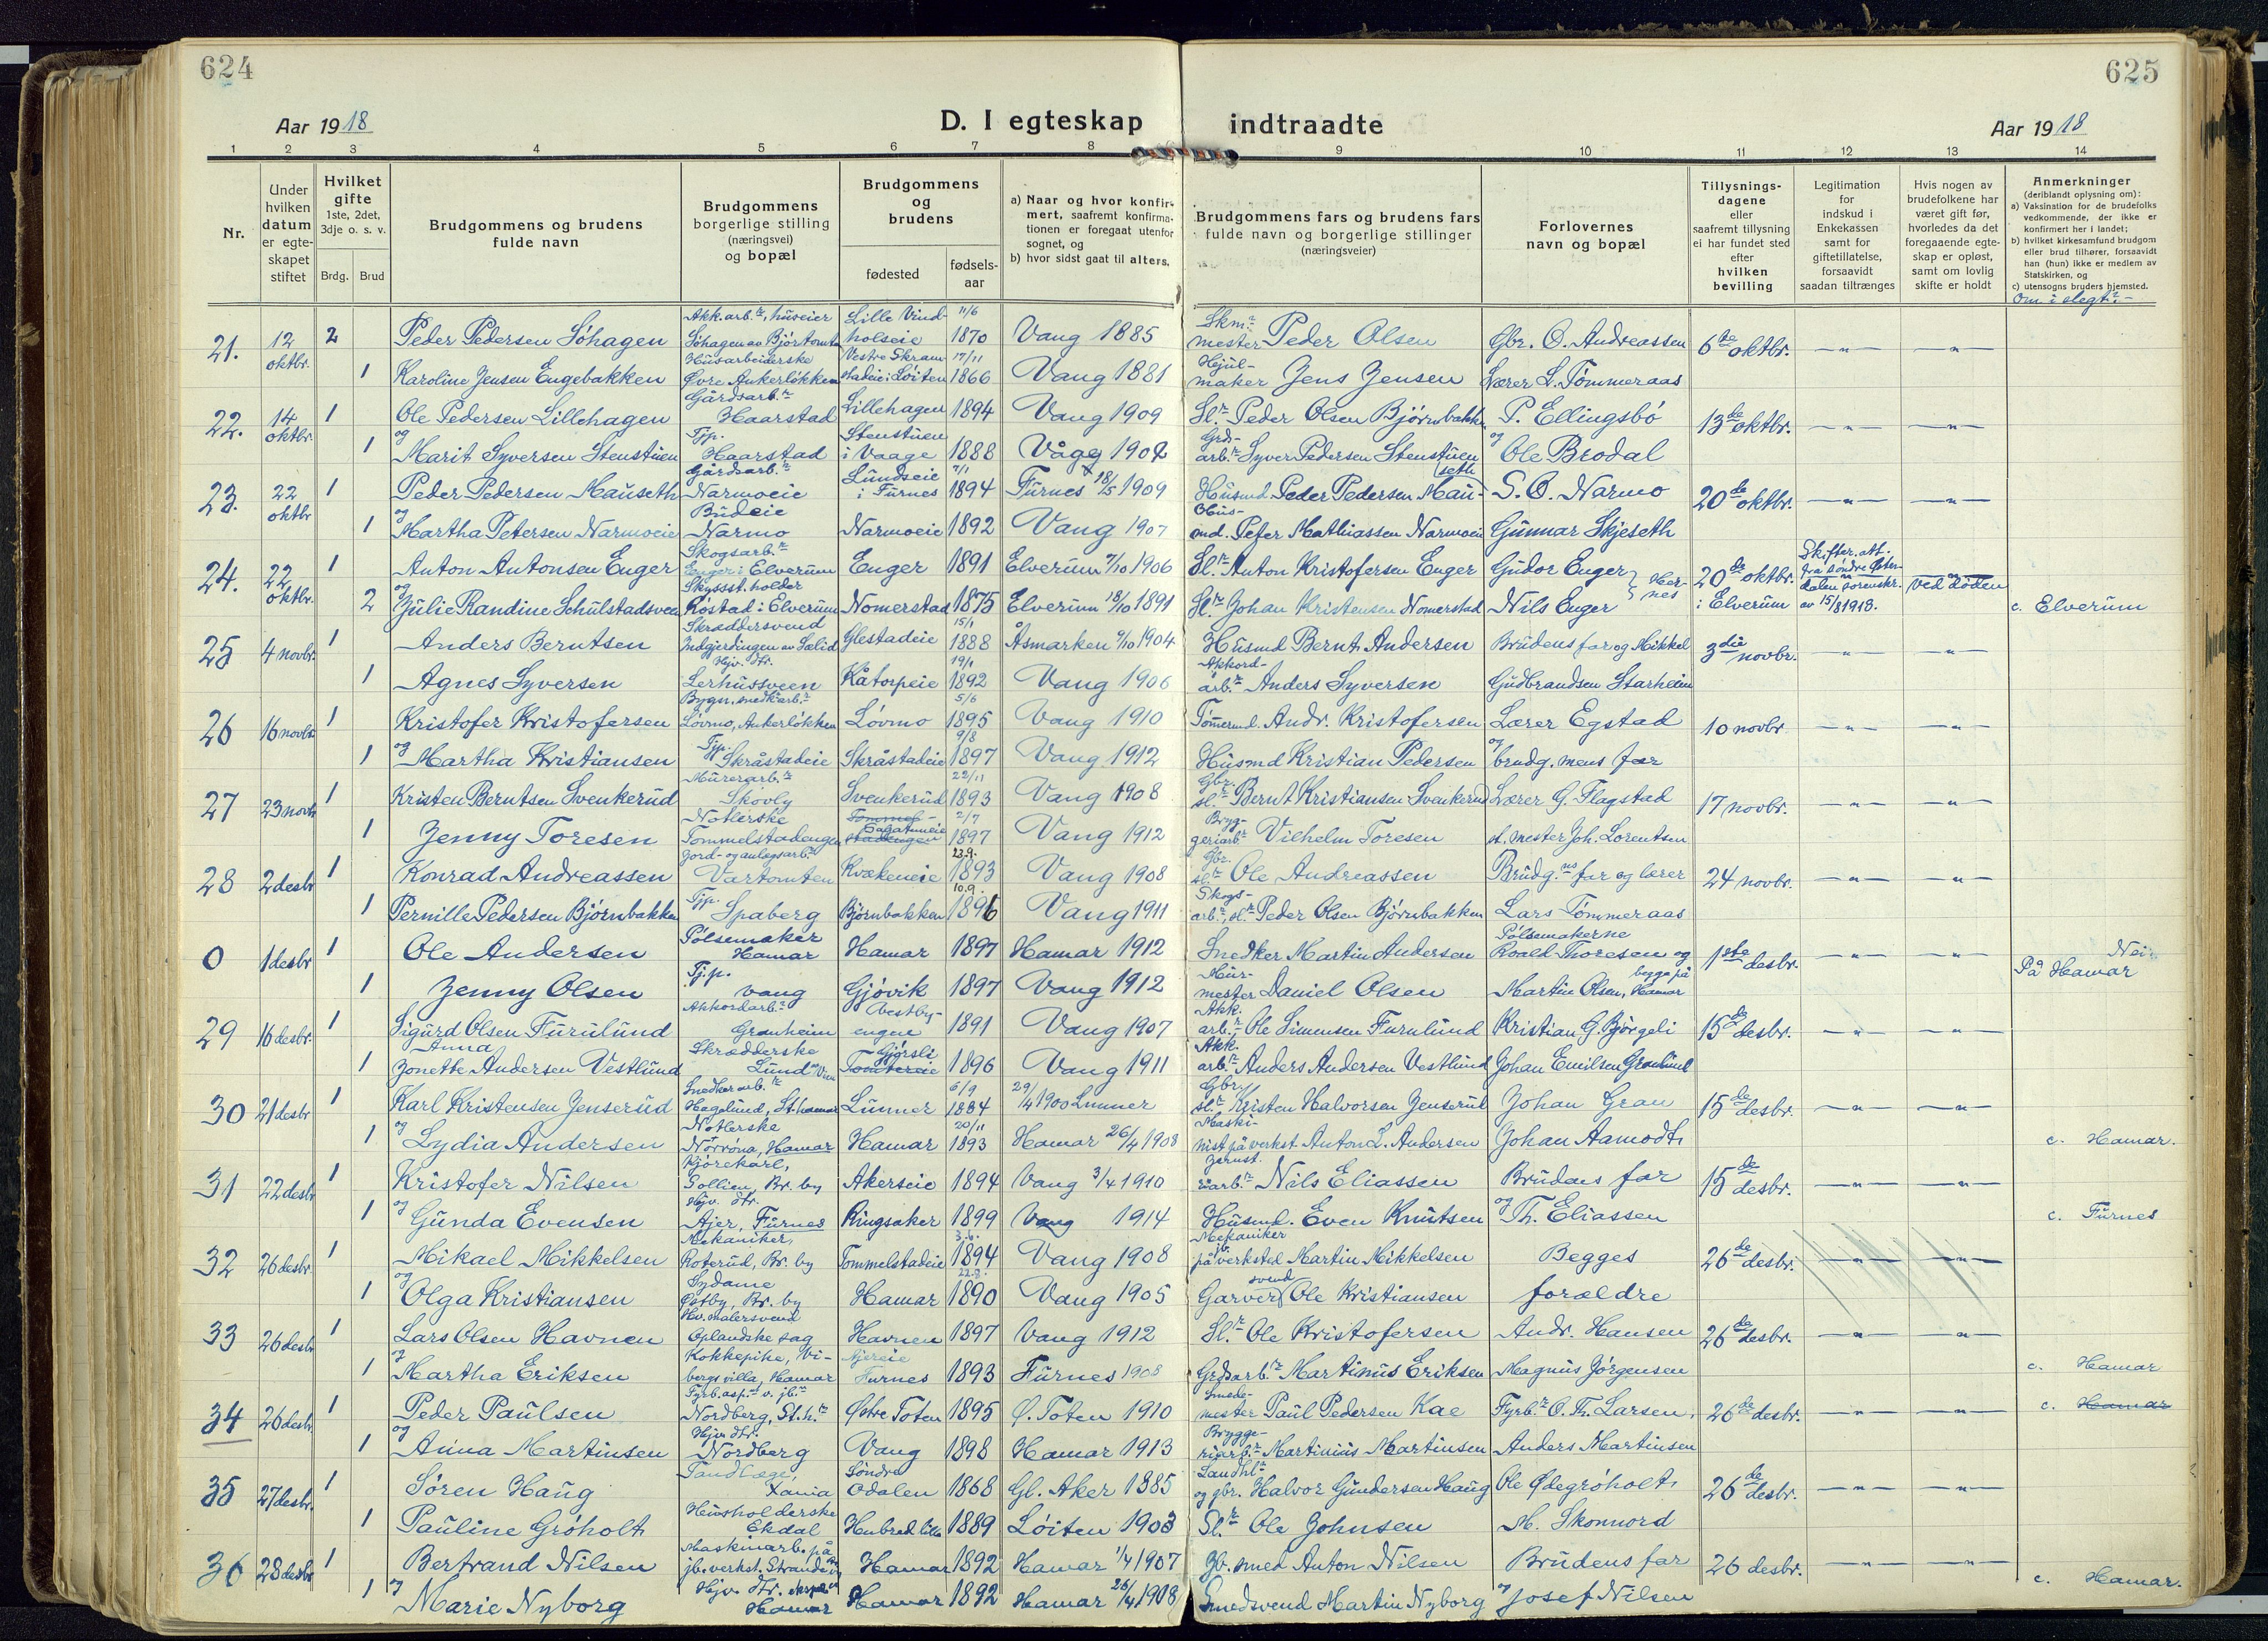 624
625
Aar 1918
D. I egteskap
indtraadte
Aar 1918
1 2 3 4 5 6 7 8 9 10 11 12 13 14
Nr.
Under hvilken datum er egteskapet stiftet
Hvilket gifte 1ste, 2det, 3dje o. s. v.
Brdg. Brud
Brudgommens og brudens fulde navn
Brudgommens borgerlige stilling (næringsvei) og bopæl
Brudgommens og brudens
fødested
fødsels-aar
a) Naar og hvor konfirmert, saafremt konfirmationen er foregaat utenfor sognet, og
b) hvor sidst gaat til alters.
Brudgommens fars og brudens fars fulde navn og borgerlige stillinger (næringsveier)
Forlovernes navn og bopæl
Tillysningsdagene eller saafremt tillysning ei har fundet sted efter hvilken bevilling
Legitimation for indskud i Enkekassen samt for giftetillatelse, forsaavidt saadan tiltrænges
Hvis nogen av brudefolkene har været gift før, hvorledes da det foregaaende egteskap er opløst, samt om lovlig skifte er holdt
Anmerkninger (deriblandt oplysning om):
a) Vaksination for de brudefolks vedkommende, der ikke er konfirmert her i landet;
b) hvilket kirkesamfund brudgom eller brud tilhører, forsaavidt han (hun) ikke er medlem av Statskirken, og
c) utensogns bruders hjemsted.
Om i slegt?-
21. 12 oktbr. 2 Peder Pedersen Søhagen Akk.arb.r, huseier Søhagen av Bjørtomta Lille Vindholseie 11/6 1870 Vang 1885 Skm.r mester Peder Olsen Gbr. O. Andreassen 6te oktbr. -"- -"-
1 Karoline Jensen Engebakken Husarbeiderske Øvre Ankerløkken Vestre Skramstadeie i Løiten 17/11 1866 Vang 1881 Hjulmaker Jens Jensen Lærer L. Tømmeraas
22. 14 oktbr. 1 Ole Pedersen Lillehagen Gårdsarb.r Haarstad Lillehagen 1894 Vang 1909 Sl.r Peder Olsen Bjørnbakken P. Ellingsbø 13de oktbr. -"- -"-
1 og Marit Syversen Stenstuen Tjp. Haarstad Stenstuen i Vaage 1888 Vågå 1902 Grdarb.r Syver Pedersen Stenstuen og Ole Brodal
23. 22 oktbr 1 Peder Pedersen Mauseth Gårdsarb.r Narmoeie Lundseie i Furnes 7/1 1894 Furnes 18/5 1909 Husmd Peder Pedersen Mauseth S. O. Narmo 20de oktbr. -"- -"-
1 og Martha Petersen Narmoeie Budeie Narmo Narmoeie 1892 Vang 1907 Husmd. Peter Mathiassen Narmoeie Gunnar Skjeseth
24. 22 oktbr. 1 Anton Antonsen Enger Skogsarb.r Enger i Elverum Enger 1891 Elverum 7/10 1906 Sl.r Anton Kristofersen Enger Gudor Enger 20de oktbr. i Elverum Skifter.att. fra Søndre Østerdalen sorenskr. av 15/8 1918. ved døden
2 og Julie Randine Schulstadsveen Skysst.holder Røstad i Elverum Nomerstad 1875 Elverum 18/10 1891 Sl.r Johan Kristensen Nomerstad Nils Enger Hernes c. Elverum
25 4 novbr. 1 Anders Berntsen Skræddersvend Indgjerdingen av Sælid Glestadeie 15/1 1888 Åsmarken 9/10 1904 Husmd Bernt Andersen Brudens far og Mikkel 3die novbr. -"- -"-
1 Agnes Syversen Hjv. dtr. Lerhussveen Kåtorpeie 19/1 1892 Vang 1906 Akkordarb.r Anders Syversen Gudbrandsen Starheim
26 16 novbr. 1 Kristofer Kristofersen Bygn. snedk.arb.r Løvmo, Ankerløkken Løvmo 5/6 1895 Vang 1910 Tømmermd. Andr. Kristofersen Lærer Egstad 10 novbr -"- -"-
1 og Martha Kristiansen Tjp. Skråstadeie Skråstadeie 9/8 1897 Vang 1912 Husmd Kristian Pedersen og brudg.mens far
27 23 novb 1 Kristen Berntsen Svenkerud Murerarb.r Skovly Svenkerud 22/11 1893 Vang 1908 Gbr. sl.r Bernt Kristiansen Svenkerud Lærer G. Flagstad 17 novbr. -"- -"-
1 Jenny Toresen Notlerske Tommelstadengen 2/7 1897 Vang 1912 Bryggeriarb.r Vilhelm Toresen st.mester Joh. Lorentsen
28 2 desbr 1 Konrad Andreassen Jord- og anlægsarb.r Vartomten Kvækeneie 23.9. 1893 Vang 1908 Gbr. sl.r Ole Andreassen Brudg.ns far og lærer 24 novbr. -"- -"-
1 Pernille Pedersen Bjørnbakken Tjp. Spaberg Bjørnbakken 10.9. 1896 Vang 1911 Skogsarb.r, sl.r Peder Olsen Bjørnbakken Lars Tømmeraas
0 1 desbr 1 Ole Andersen Pølsemaker Hamar Hamar 1897 Hamar 1912 Snedker Martin Andersen Pølsemakerne Roald Thoresen og 1ste desbr. -"- -"- Nei. På Hamar
1 Jenny Olsen Tj.p. Vang Gjøvik 1897 Vang 1912 Murmester Daniel Olsen Martin Olsen, begge på Hamar
29 16 desbr. 1 Sigurd Olsen Furulund Akkordarb.r Granheim Vestbyengene 1891 Vang 1907 Akk. arb.r Ole Simensen Furulund Kristian G. Bjørgeli 15de desbr. -"- -"-
1 Anna Jonette Andersen Vestlund Skrædderske Lund Gjørsli Tomtereie 1896 Vang 1911 Akk. arb.r Anders Andersen Vestlund Johan Emilsen Granlund
30 21 desbr 1 Karl Kristensen Jenserud Snedkerarb.r Hagalund, St.hamar Lunner 6/9 1884 29/4 1900 Lunner Gbr. sl.r Kristen Halvorsen Jenserud Johan Gran 15de desbr. -"- -"-
1 og Lydia Andersen Notlerske Nørrøna, Hamar Hamar 20/11 1893 Hamar 26/4 1908 Maskinist på verkst Anton L. Andersen Johan Aamodt c. Hamar.
31 22 desbr 1 Kristofer Nilsen Kjørekarl, Sollien, Br. by Akerseie 1894 Vang 3/4 1910 Nils Eliassen Brudens far 15de desbr. -"- -"-
1 og Gunda Evensen Hjv. dtr. Ajer, Furnes Ringsaker 1899 Vang 1914 Husmd. Even Knutsen og Th. Eliassen c. Furnes
32 26 desbr. 1 Mikael Mikkelsen Mekaniker, Roterud, Br. by Tommelstadeie 1894 Vang 1908 Mekaniker på jb. verksted Martin Mikkelsen Begges 26de desbr. -"- -"-
1 og Olga Kristiansen Sydame Østby, Br. by Hamar 1890 Vang 1905 Garversvend Ole Kristiansen forældre
33 26 desbr 1 Lars Olsen Havnen Hv. malersvend Oplandske sag Havnen 1897 Vang 1912 Sl.r Ole Kristofersen Andr. Hansen 26de desbr. -"- -"-
1 og Martha Eriksen Kokkepike, Vibergs villa, Hamar Ajereie Furnes 1893 Furnes 1908 Grdsarb.r Martinus Eriksen Magnus Jørgensen c. Hamar
34 26 desbr. 1 Peder Paulsen Fyrb.asp.r v. jb.n Nordberg, St.h.r Østre Toten 1895 Ø. Toten 1910 Smedemester Paul Pedersen Kae Fyrb.r O. Th. Larsen, 26de desbr. -"- -"- c. Hamar
1 og Anna Martinsen Hjv. dtr. Nordberg Vang 1898 Hamar 1913 Bryggeriarb.r Martinius Martinsen Anders Martinsen
35 27 desbr. 1 Søren Haug Tandlæge, Xania Søndre Odalen 1868 Gl. Aker 1885 Landhl.r og gbr. Halvor Gundersen Haug Ole Ødegrøholt 26de desbr. -"- -"-
1 Pauline Grøholt Husholderske Ekdal Hubred lille 1889 Løiten 1903 Sl.r Ole Johnsen M. Skonnord
36 28 desbr 1 Bertrand Nilsen Maskinarb. på jb.verkst. Hamar 1892 Hamar 1/4 1907 Jb. smed Anton Nilsen Brudens far 26 desbr. -"- -"-
1 og Marie Nyborg Hjv. dtr. Hamar Hamar 1892 Hamar 26/4 1908 Smedsvend Martin Nyborg og Josef Nilsen c. Hamar.